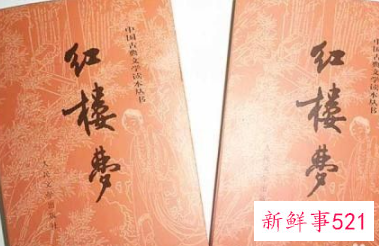 中国古典文学读本丛书
红楼梦
人民文学出版社
中国古典文学读本丛书
红楼梦
新鲜事521